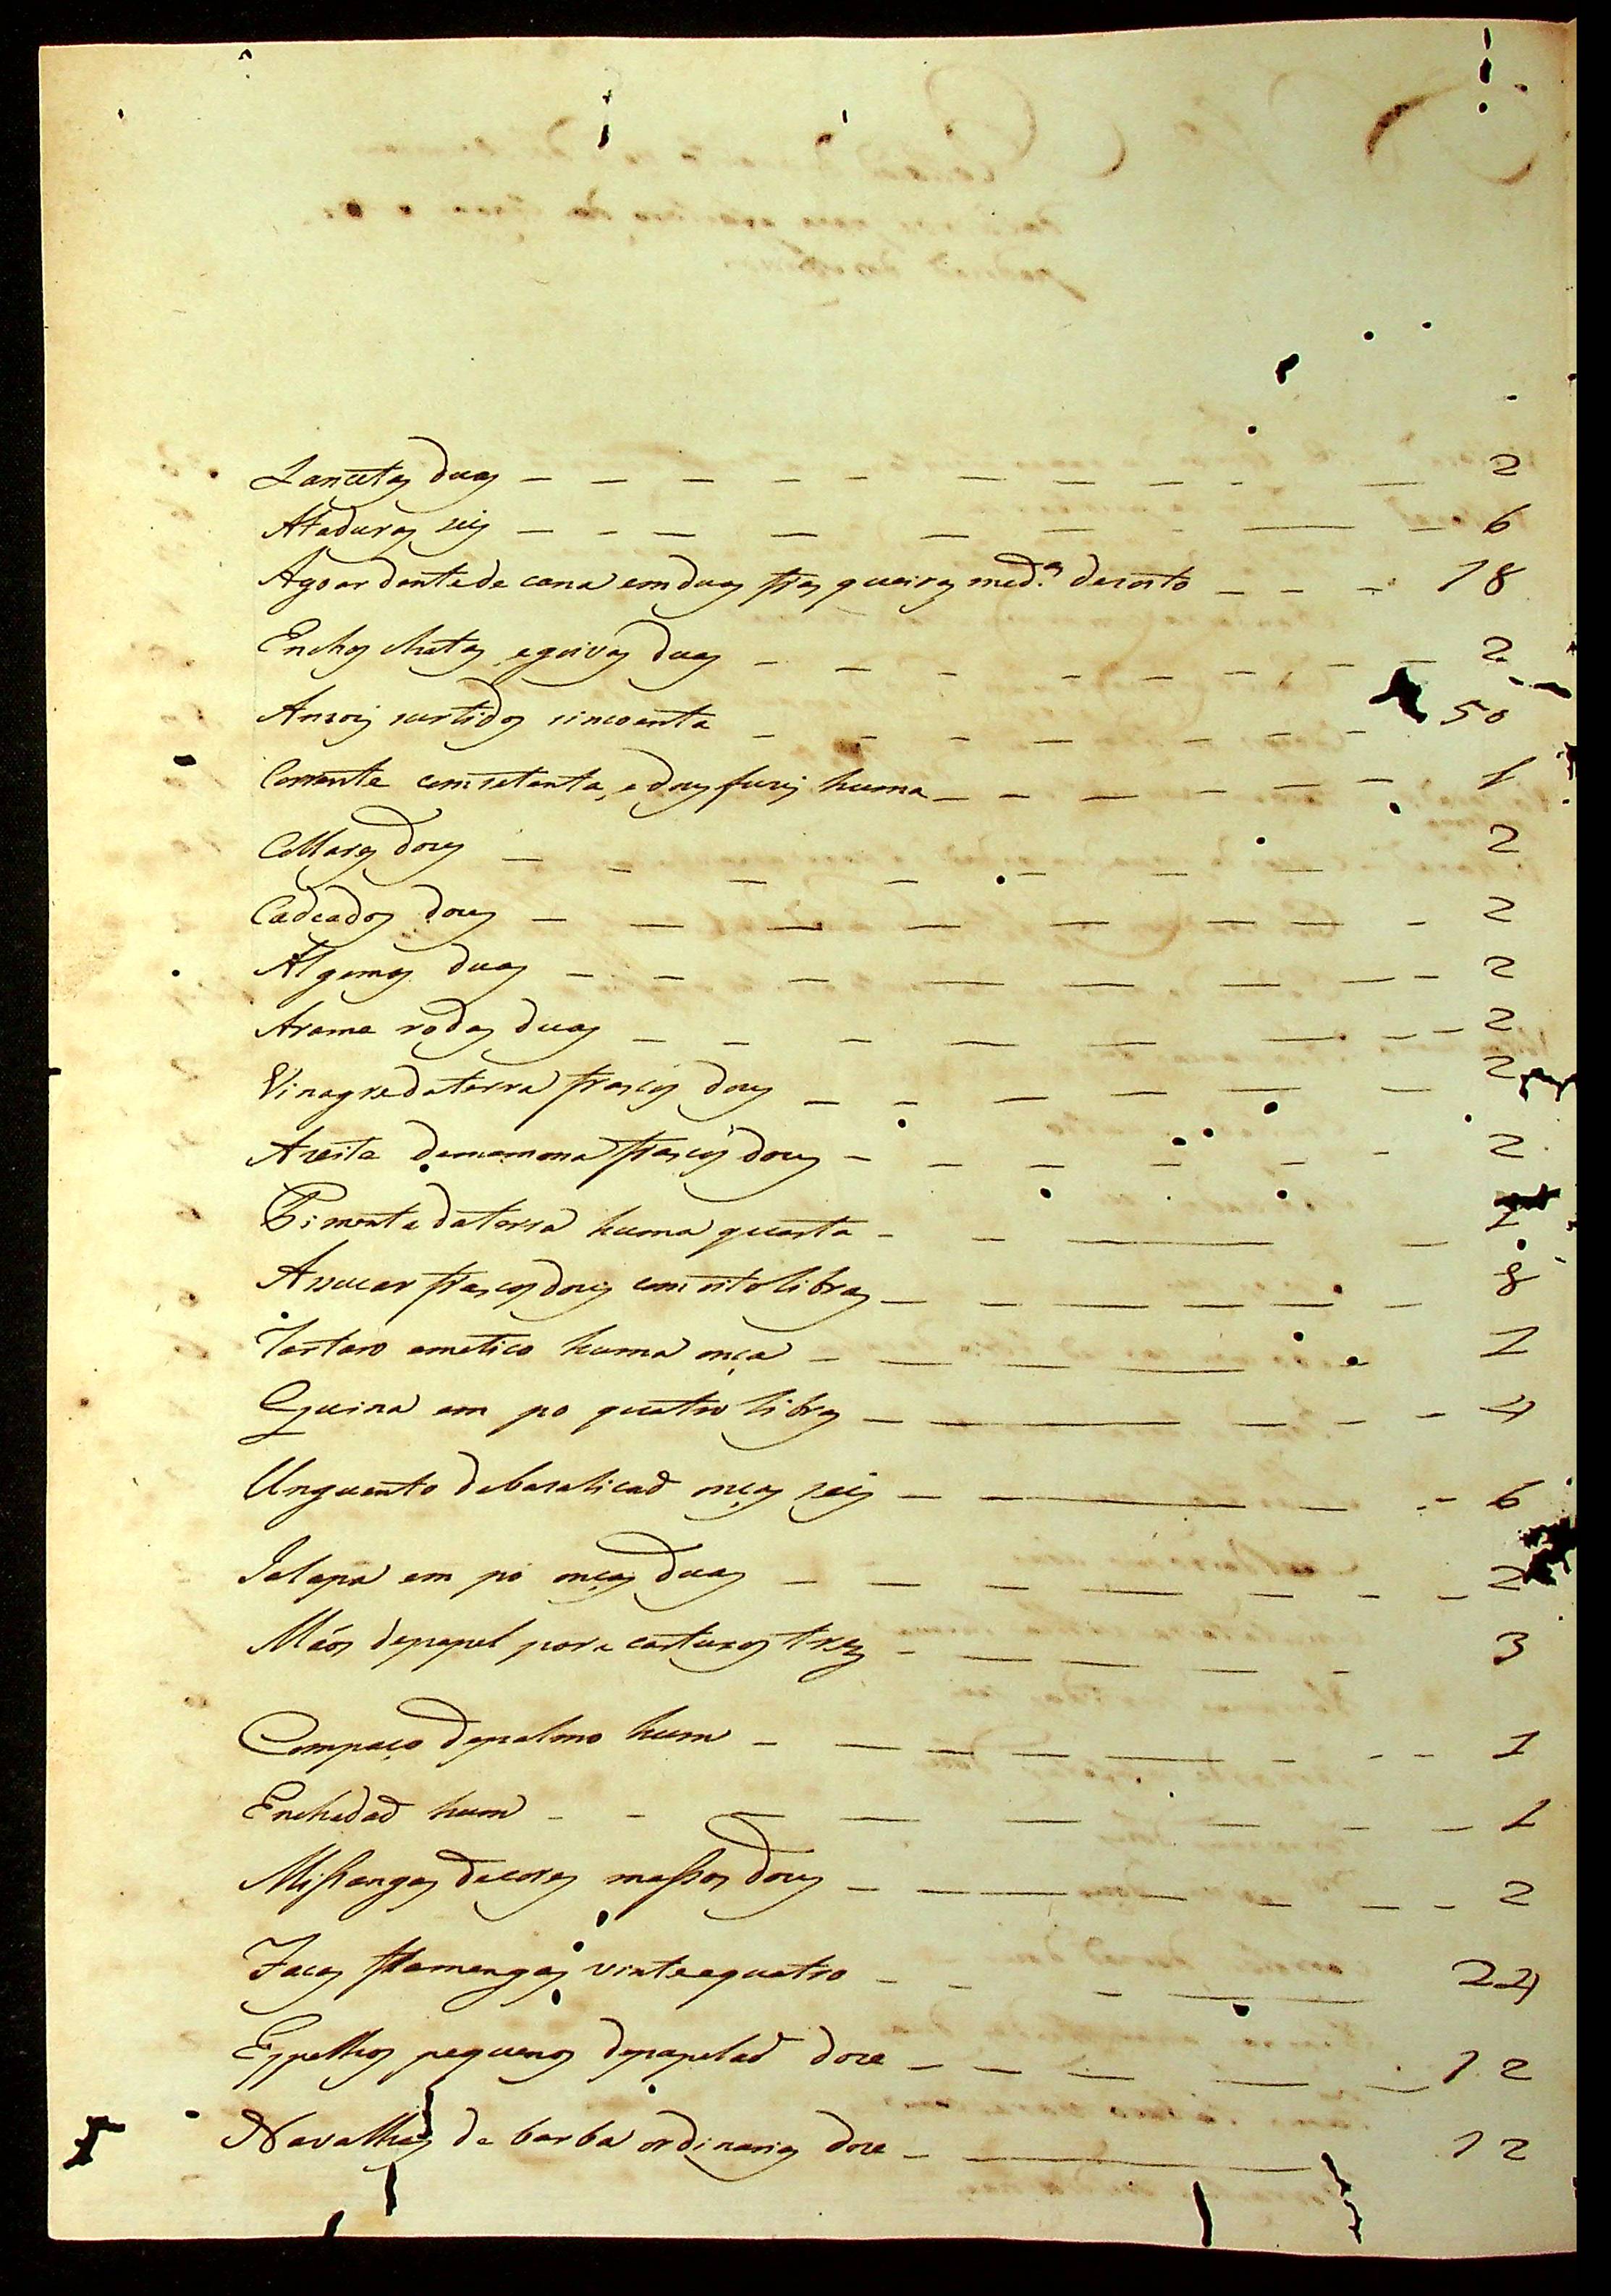 Lancetas duas — 2
Ataduras seis — 6
Agoardente de cana em duas frasqueiras med.as desoito — 18
Enchos chatas, e goivas duas — 2
Ansois surtidos sincoenta — 50
Corrente com setenta, e dous fusis huma — 1
Collares dous — 2
Cadeados dous — 2
Algemas duas — 2
Arame rodas duas — 2
Vinagre da terra frascos dous — 2
Azeite de mamona frascos dous — 2
Pimenta da terra huma quarta — 1
Assucar frascos dous com oito libras — 8
Tartaro emetico huma onça — 1
Quina em po quatro libras — 4
Unguento de basalicaõ onças seis — 6
Jalapa em pó onças duas — 2
Mãos de papel para cartuxos tres — 3
Compaço de palmo hum — 1
Enchadaõ hum — 1
Missangas de cores massos dous — 2
Facas flamengas vinte e quatro — 24
Espelhos pequenos de papelaõ doze — 12
Navalhas de barba ordinarias doze — 12